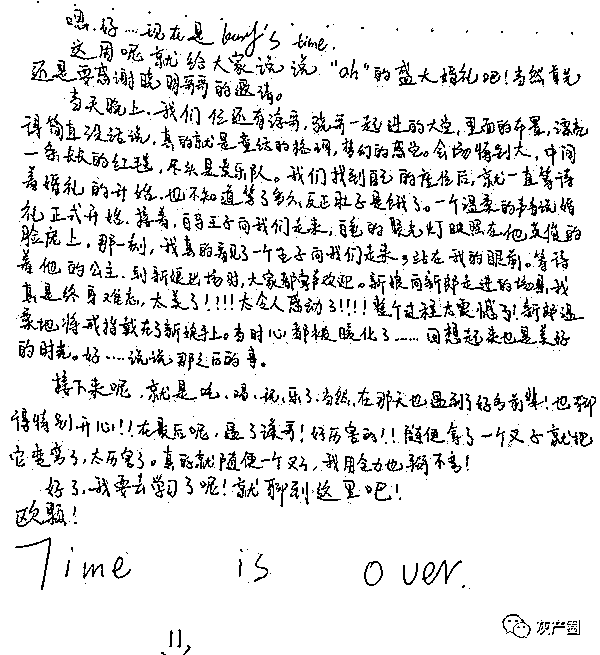 嗯，好……现在是 bunny's time.
这周呢就给大家说说"ah"的盛大婚礼吧！当然首先
还是要感谢晓明哥哥的邀请。
当天晚上，我们一起进的大堂，里面的布置，漂亮
得简直没话说，真的就是童话的格调，梦幻的感觉。会场特别大，中间
一条长长的红毯，尽头是音乐队。我们找到自己的座位后，就一直等待
着婚礼的开始，也不知道等了多久，反正肚子是饿了。一个温柔的声音说婚
礼正式开始，接着，白马王子向我们走来，白色的聚光灯映照在他英俊的
脸庞上，那一刻，我真的看见了一个王子向我们走来，站在我的眼前。等待
着他的公主，到新娘出场时，大家都欢迎。新娘向新郎走进的场景，我
真是终身难忘，太美了！！！！太令人感动了！！！！整个过程太震撼了！新郎温
柔地将戒指戴在了新娘手上。当时心都被融化了……回想起来也是美好
的时光。好……说说那之后的事。
接下来呢，就是吃、喝、玩、乐了，当然，在那天也遇到了好多前辈！也聊
得特别开心！！在最后呢，逗了谦哥！好厉害的！！随便拿了一个叉子就把
它变弯了，太厉害了。真的就随便一个叉子，我用全力也掰不弯！
好了，我要去学习了呢！就聊到这里吧！
欧颗！
Time is over.
灰产圈